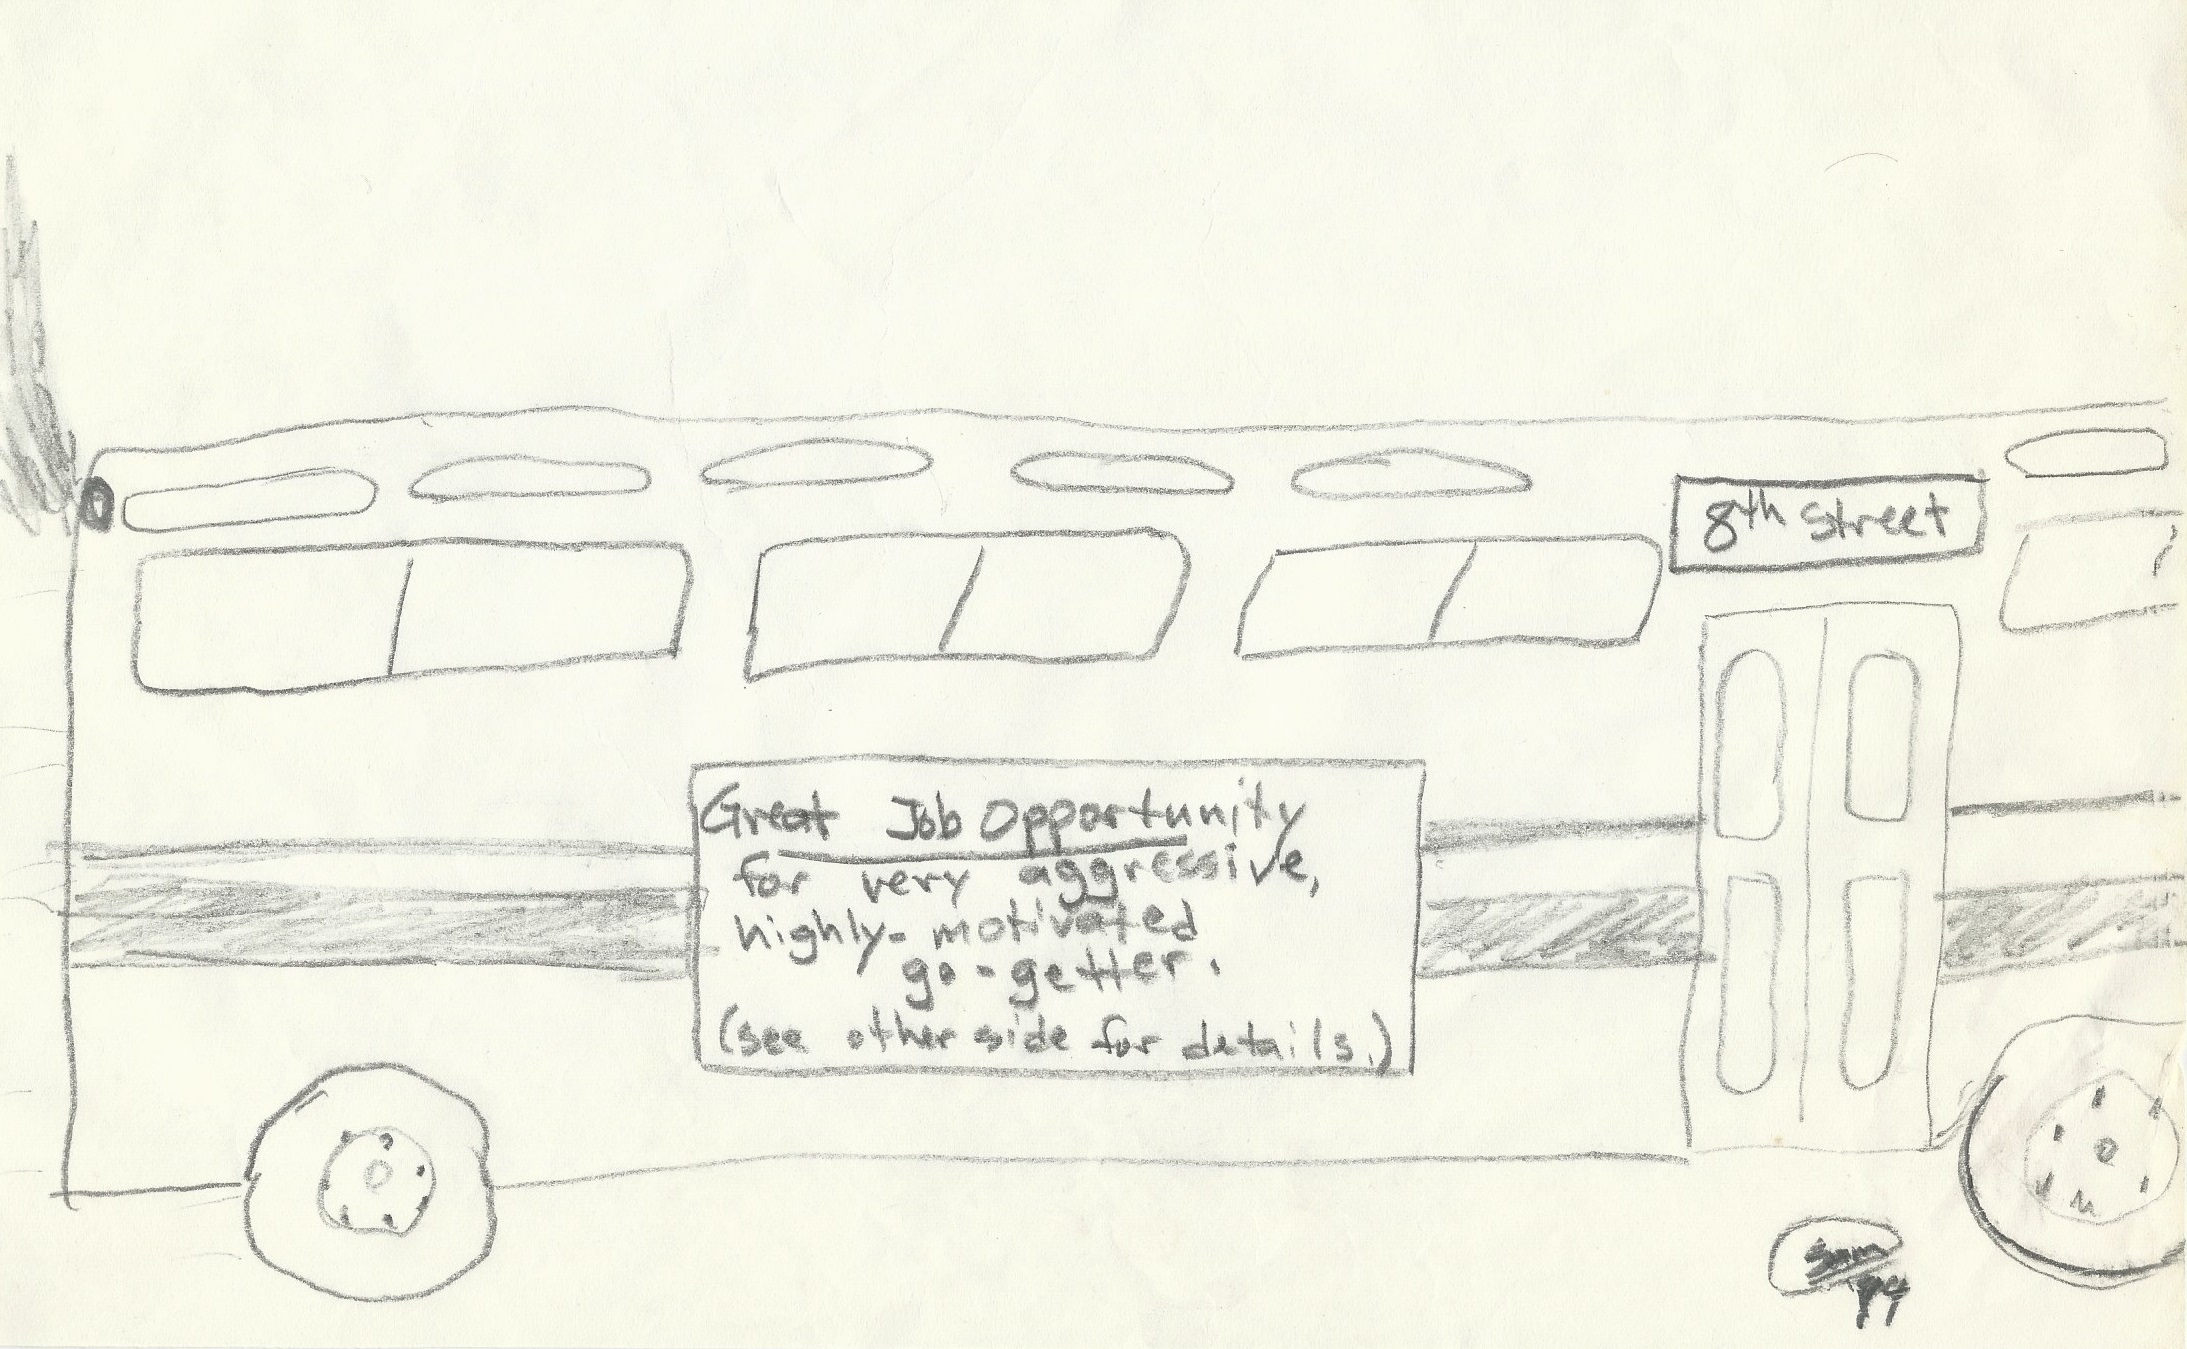 8th Street
Great Job Opportunity
for very aggressive,
highly-motivated
go-getter.
(see other side for details.)
Sam